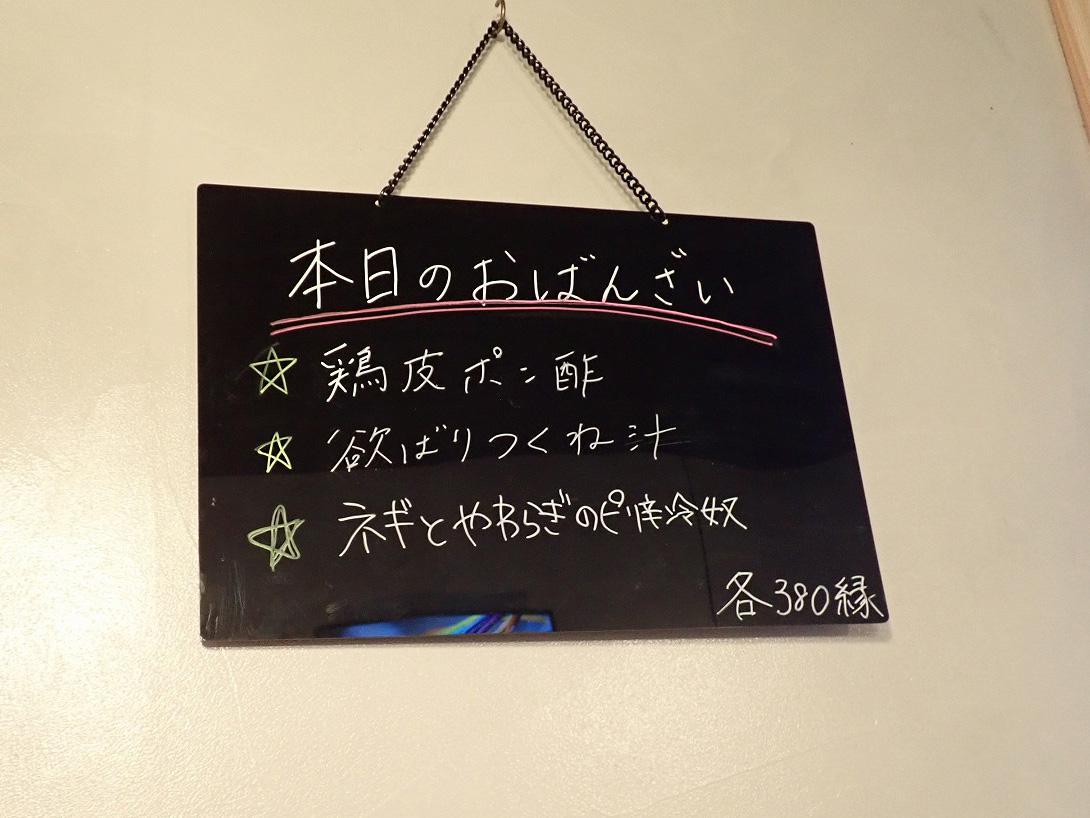 本日のおばんざい
☆ 鶏皮ポン酢
☆ 欲ばりつくね汁
☆ ネギとやわらぎのピリ辛冷奴
各380縁